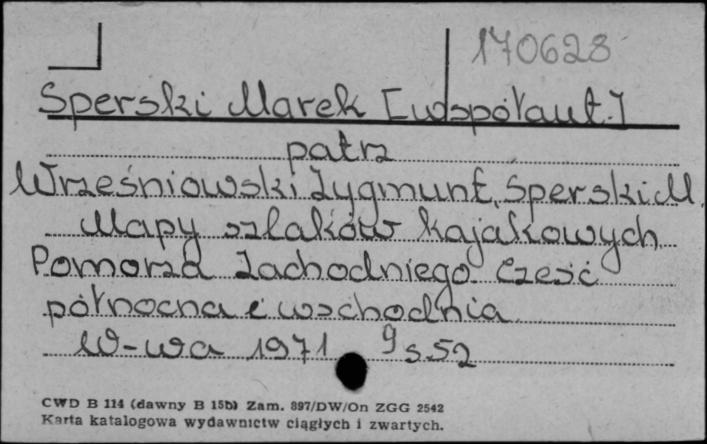 170628
Sperski Marek [współaut.]
patrz
Wrześniowski Zygmunt, Sperski M.
Mapy szlaków kajakowych
Pomorza Zachodniego Cześć
północna i wschodnia
W-wa 1971 s. 52
CWD B 114 (dawny B 15b) Zam. 897/DW/On ZGG 2542
Karta katalogowa wydawnictw ciągłych i zwartych.